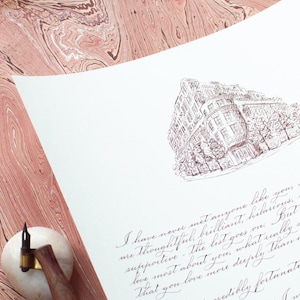 I have never met anyone like you
are thoughtful, brilliant, hilarious,
supportive - the list goes on. But
love most about you, what really
that you love more deeply than
fortunat